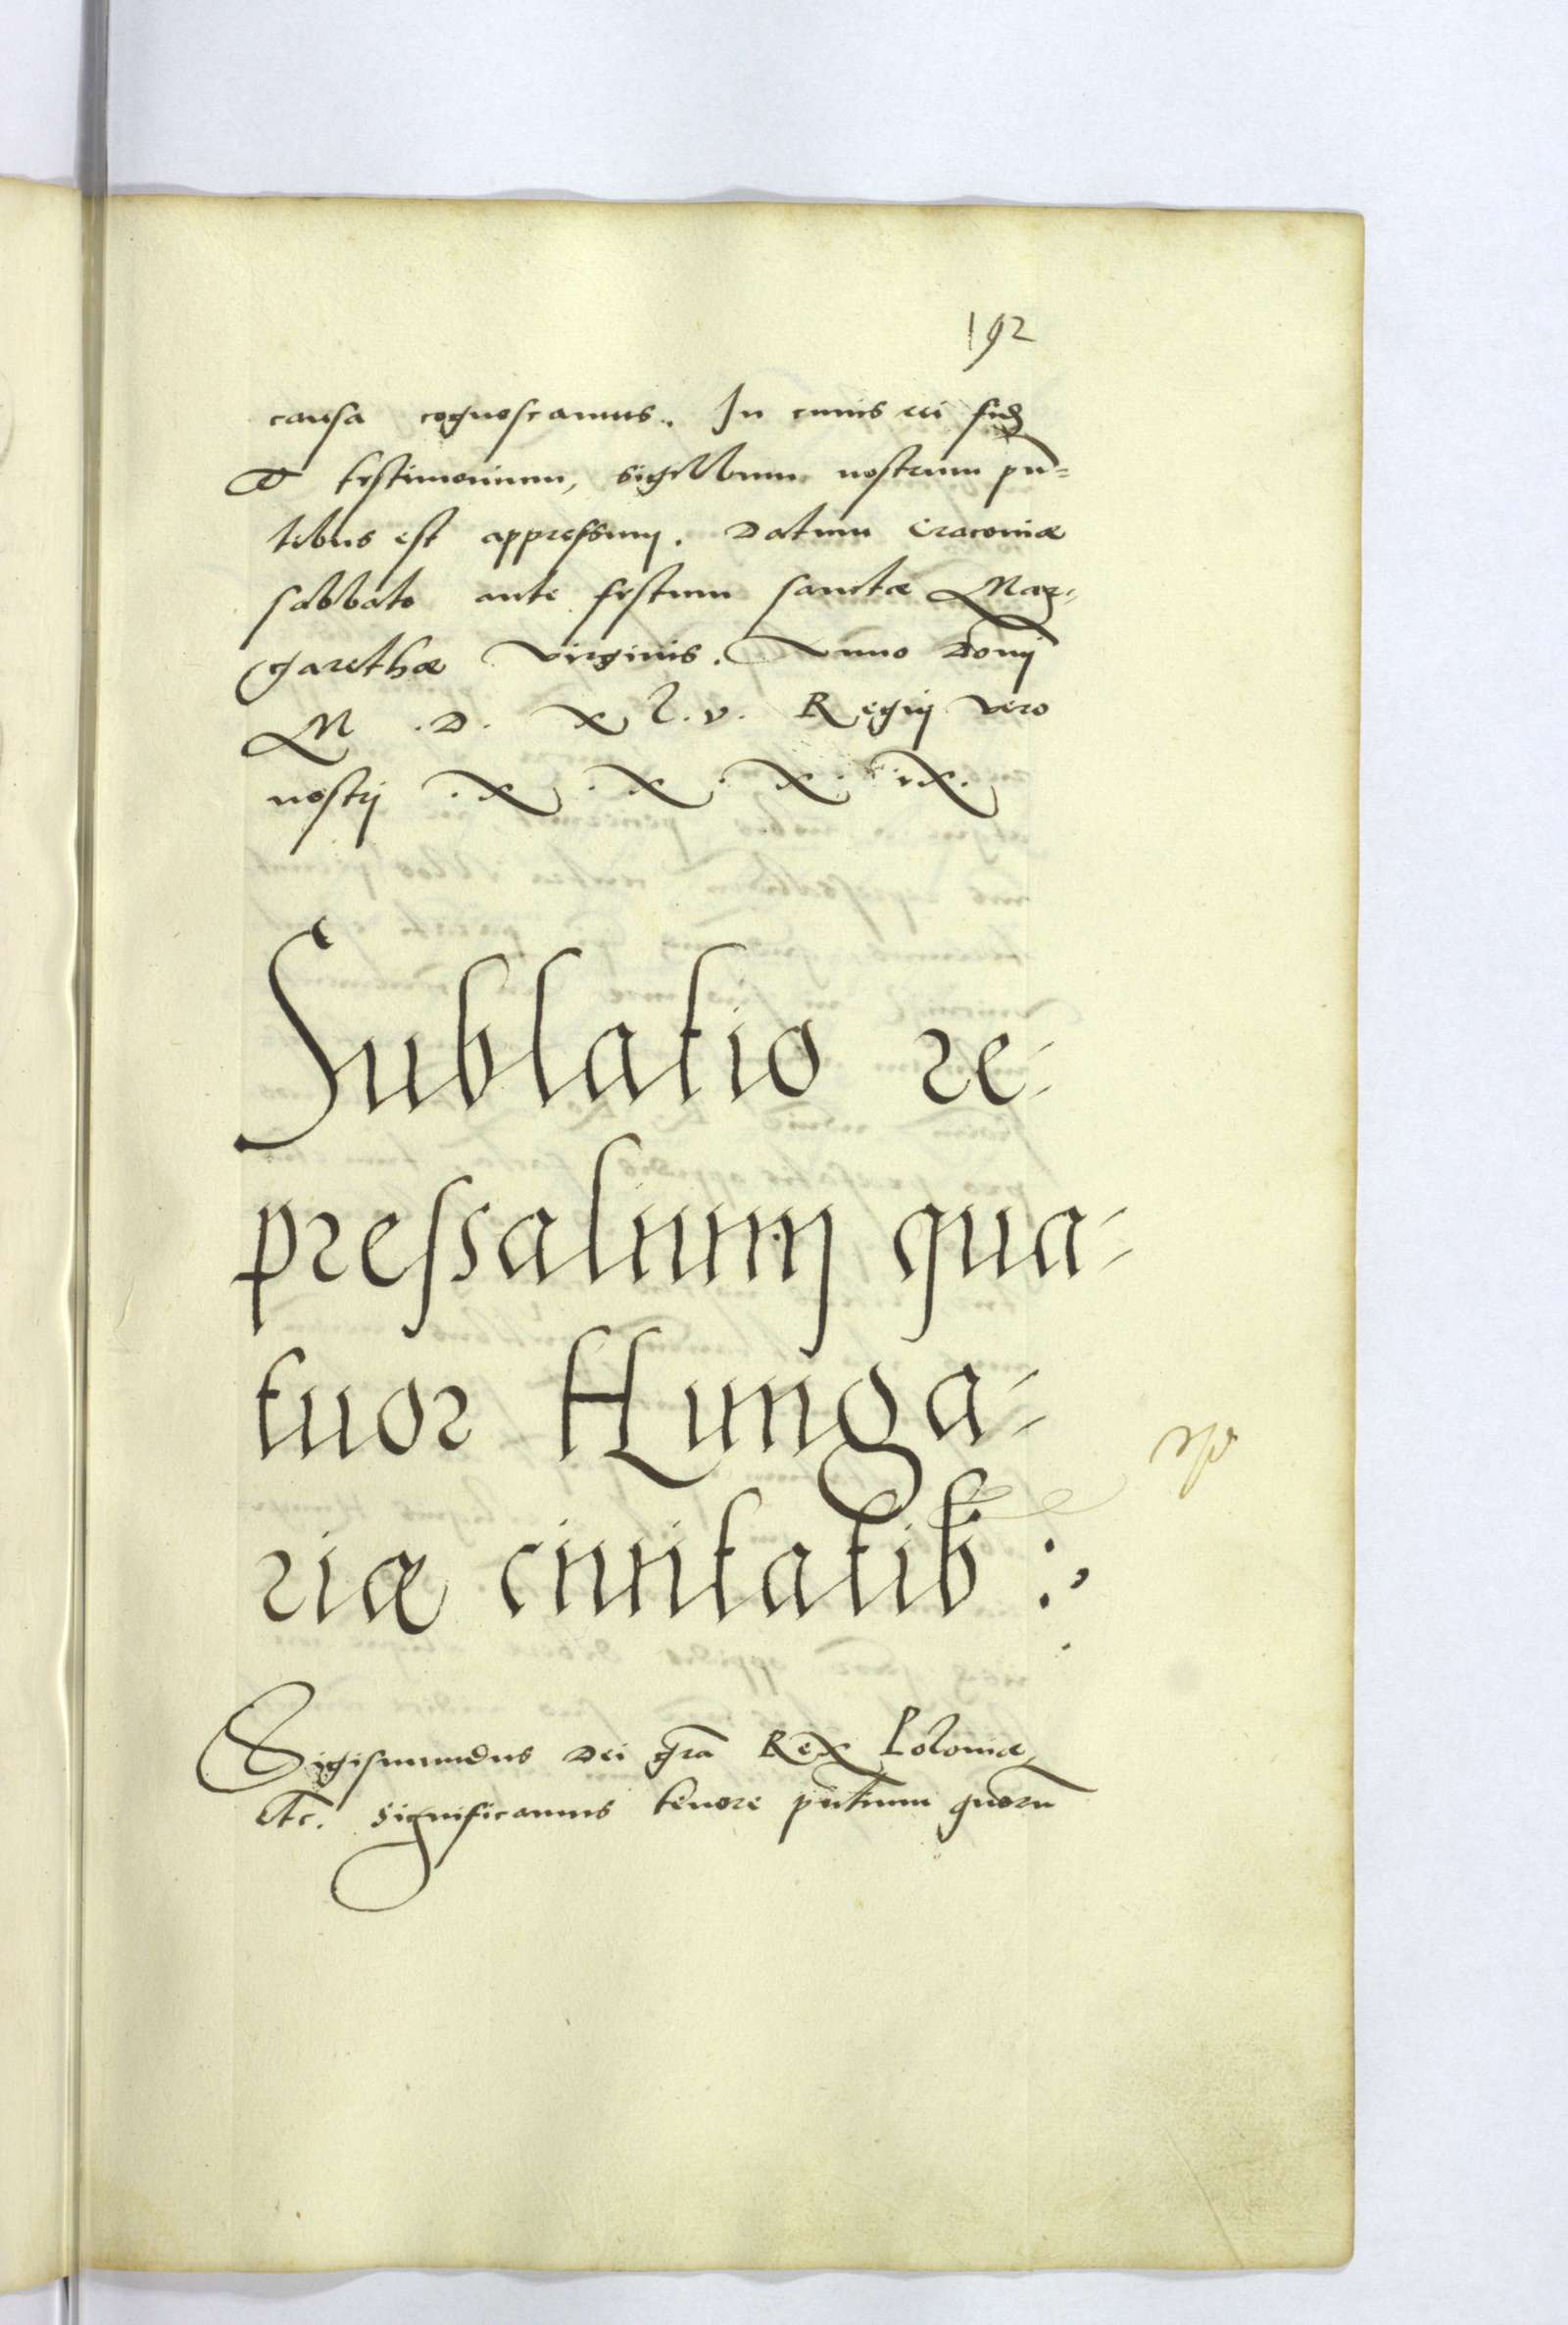 192
causa cognoscamus. In cuius rei fidē
et testimonium, sigillum nostrum pn̄=
tibus est appressum. Datum Cracoviæ
sabbato ante festum sanctæ Mar=
garethæ Virginis. Anno Domī
M .D. X L. V. Regnj vero
nostrj .X.X.X.IX.
Sublatio re-
pressalium qua-
tuor Hunga-
riæ civitatib:
Sigismundus Dei gr̄a Rex Poloniæ
etc. Significamus tenore pn̄tium quorū